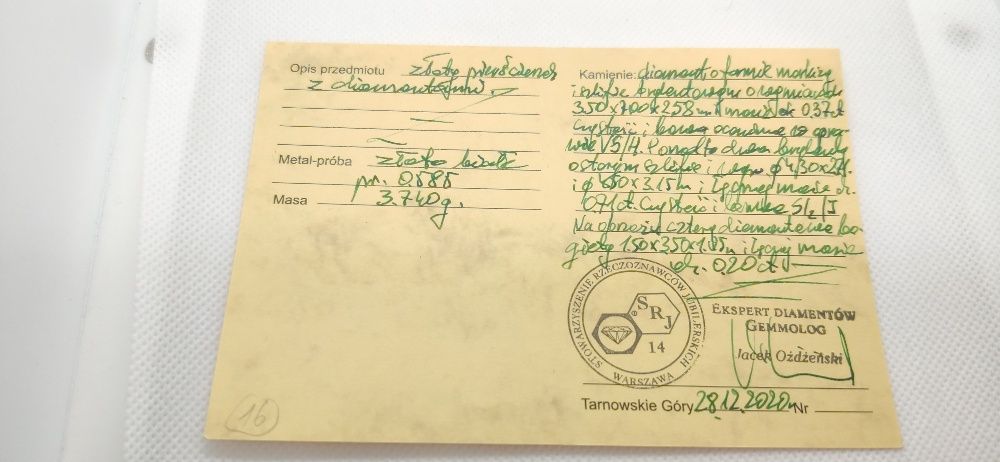 Opis przedmiotu złoty pierścionek
z diamentami.
Metal-próba złoto białe
pr. 0.585
Masa 3.740g.
Kamienie: diament o formie markizy
i szlifie brylantowym o rozmiarach
3.50x7.00x2.58 m i masie ok 0.37ct
Czystość i barwa oceniona w opra-
wie VS/H. Ponadto dwa brylanty
o starym szlifie i
i i łącznej masie ok.
0.71ct. Czystość i barwa SI2/I
Na obrzeżu cztery diamentowe ba-
giety 1.50x3.50x1.85m i łącznej masie
ok. 0.20ct
STOWARZYSZENIE RZECZOZNAWCÓW JUBILERSKICH
WARSZAWA
SRJ
14
EKSPERT DIAMENTÓW
GEMMOLOG
Jacek Ożdżeński
Tarnowskie Góry 28.12.2020 Nr
16